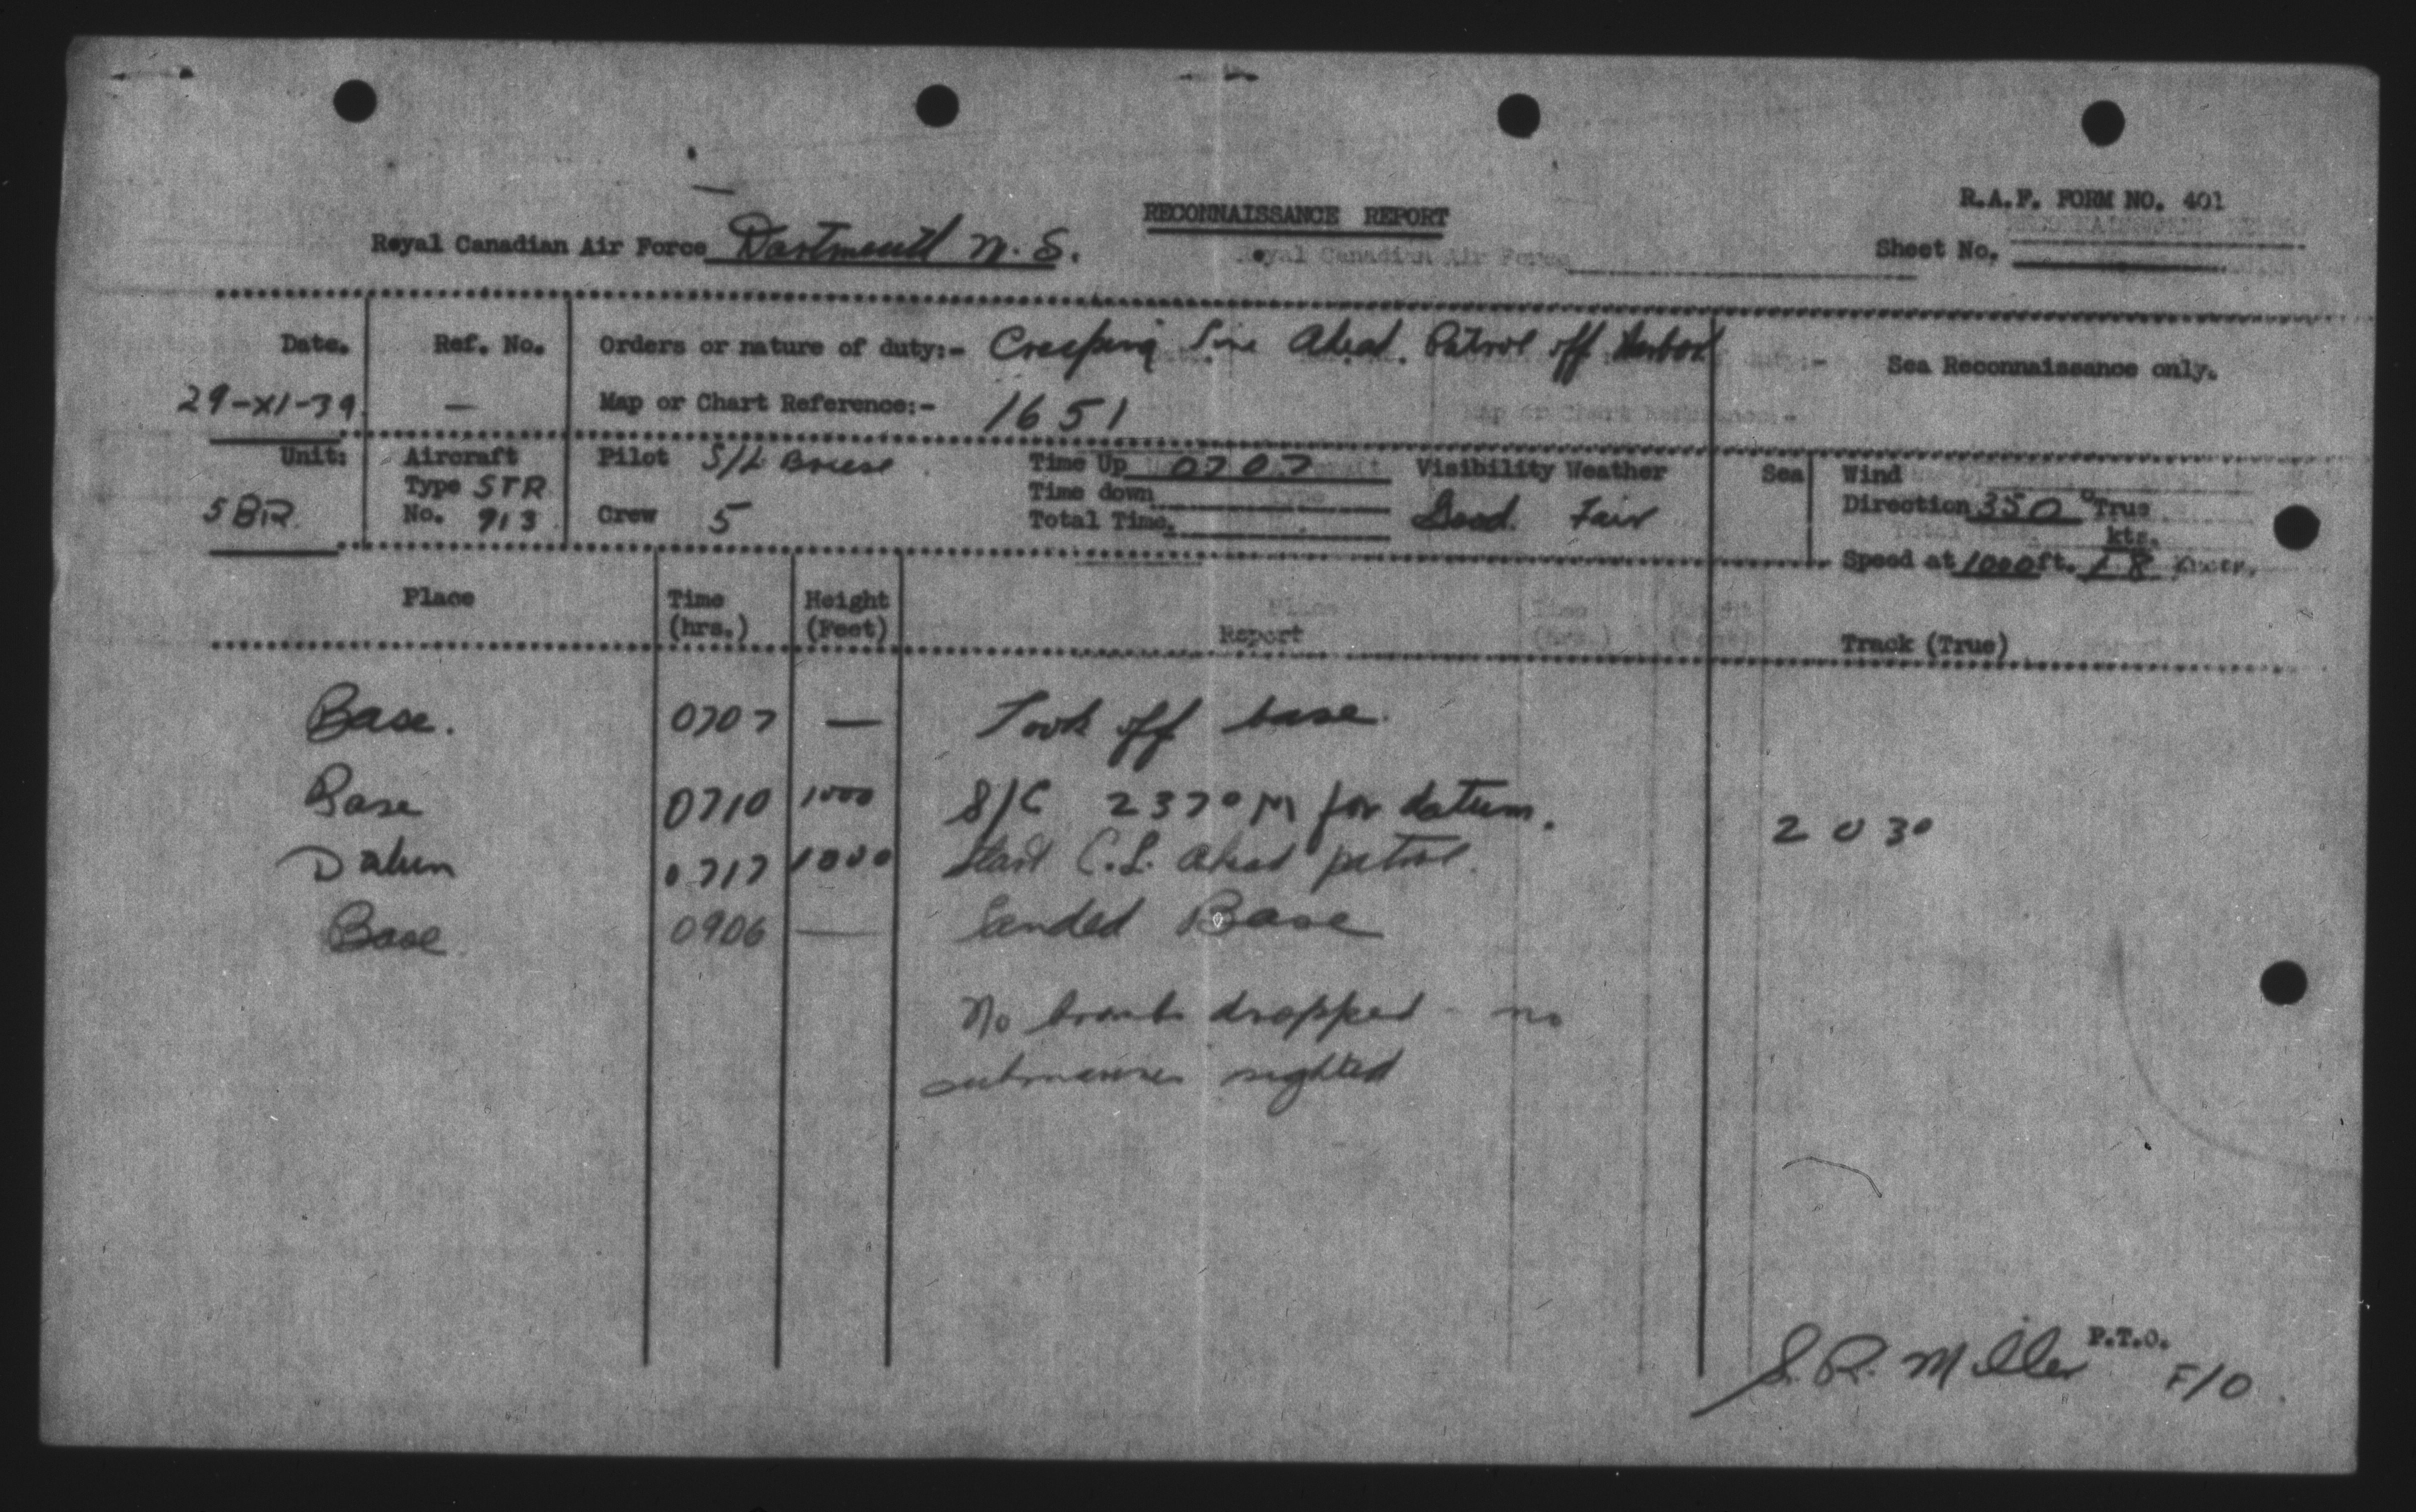 RECONNAISSANCE REPORT
R.A.F. FORM NO. 401
Royal Canadian Air Force Dartmouth N.S.
Sheet No.
Date. Ref. No. Orders or nature of duty:- Creeping Line Ahead. Patrol off Harbor
Sea Reconnaissance only.
29-XI-39. — Map or Chart Reference:- 1651
Unit: Aircraft Pilot S/L Time Up 0707 Visibility Weather Sea Wind
Type STR Time down Direction 350 °True
5BR. No. 913 Crew 5 Total Time. Good. Fair kts.
Speed at 1000 ft. 18
Place Time (hrs.) Height (Feet) Report Track (True)
Base. 0707 — Took off base.
Base 0710 1000 S/C 237° M for datum. 203°
Datum 0717 1000 Start C.L. Ahead patrol.
Base. 0906 — Landed Base
No bombs dropped - no
submarines sighted
P.T.O.
S.R. Miller F/O